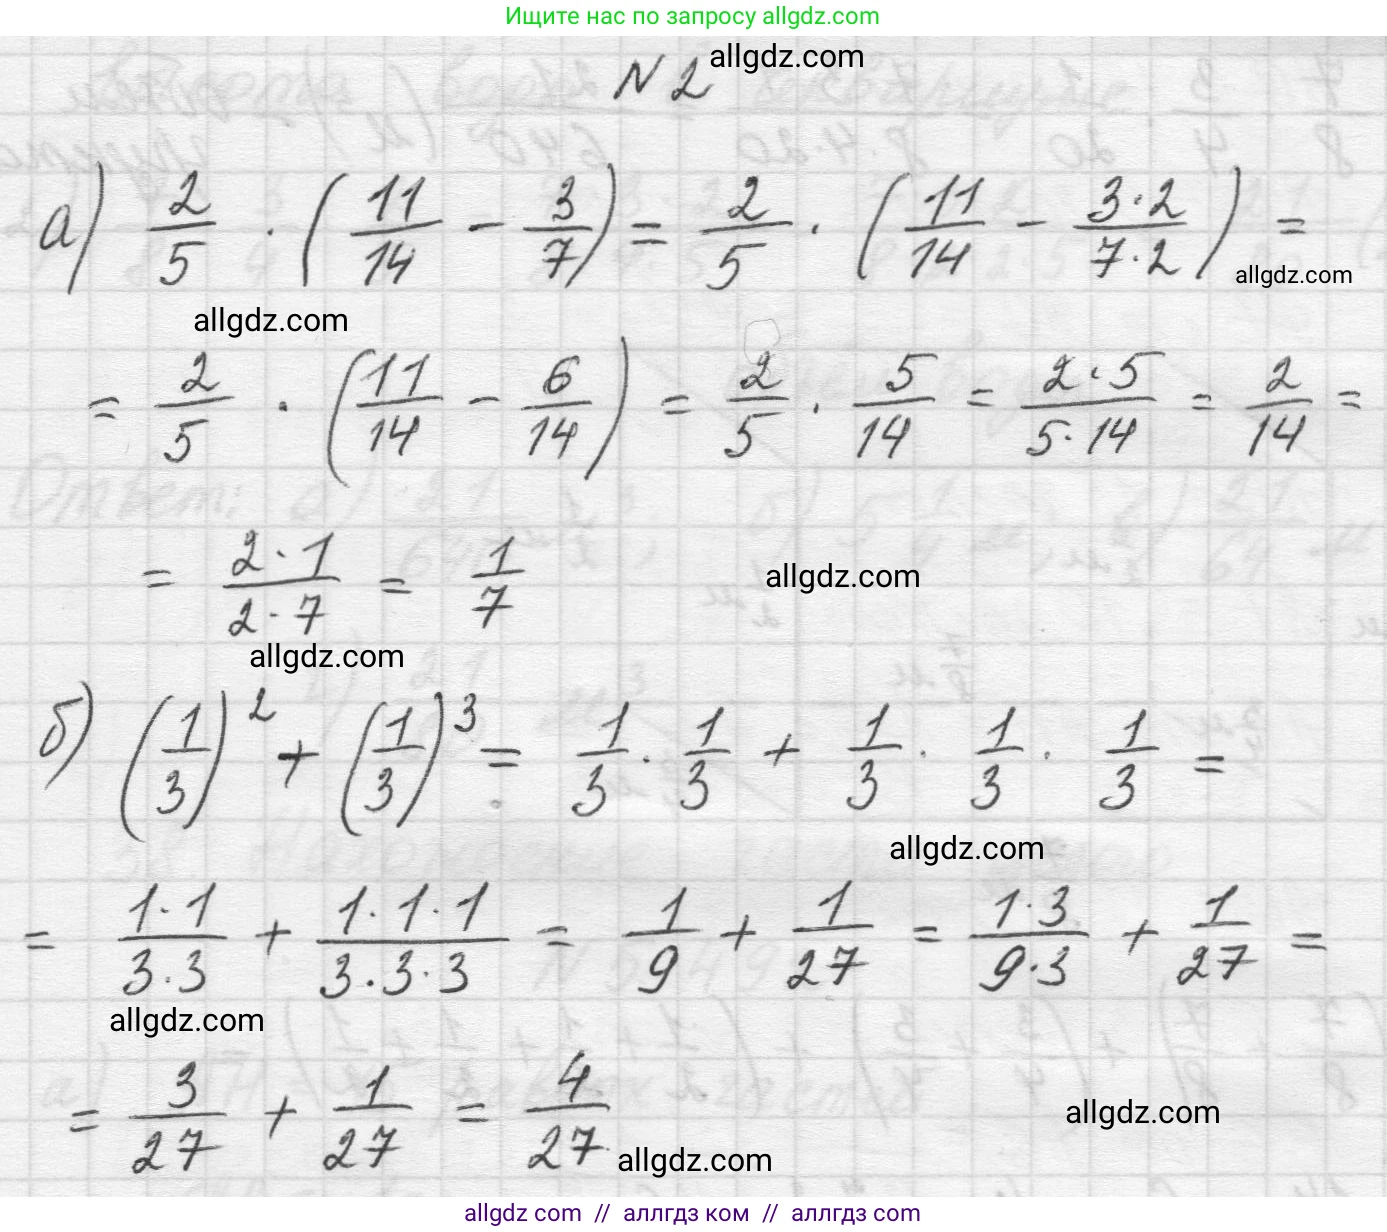 Ищите нас по запросу allgdz.com
№ 2 allgdz.com
а) 2/5 · (11/14 - 3/7) = 2/5 · (11/14 - 3·2/7·2) =
allgdz.com allgdz.com
= 2/5 · (11/14 - 6/14) = 2/5 · 5/14 = 2·5/5·14 = 2/14 =
= 2·1/2·7 = 1/7 allgdz.com
allgdz.com
б) (1/3)² + (1/3)³ = 1/3 · 1/3 + 1/3 · 1/3 · 1/3 =
allgdz.com
= 1·1/3·3 + 1·1·1/3·3·3 = 1/9 + 1/27 = 1·3/9·3 + 1/27 =
allgdz.com
= 3/27 + 1/27 = 4/27 allgdz.com allgdz.com
allgdz com // аллгдз ком // аллгдз com